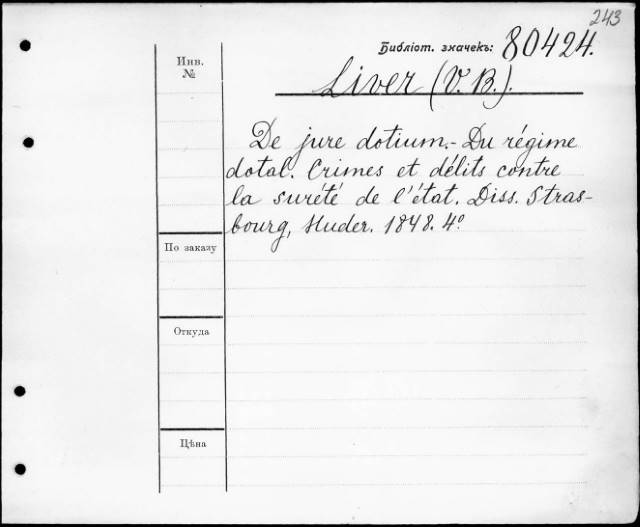 243
Библіот. значекъ: 80424.
Инв.
№
Liver (V. B.).
De jure dotium. - Du régime
dotal. Crimes et délits contre
la sureté de l'état. Diss. Stras-
bourg, Huder. 1848. 4º
По заказу
Откуда
Цѣна